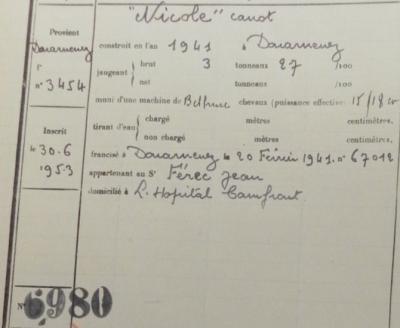 "Nicole" canot
Provient
Douarnenez
f°
n° 3454
construit en l'an 1941 à Douarnenez
jaugeant { brut 3 tonneaux 27 /100
net tonneaux /100
muni d'une machine de chevaux (puissance effective) 15/18 cv
tirant d'eau { chargé mètres centimètres.
non chargé mètres centimètres.
Inscrit
le 30.6
1953
francisé à Douarnenez le 20 Février 1941. n° 67012
appartenant au Sr Férec Jean
domicilié à L'Hopital Camfrout
N° 6980